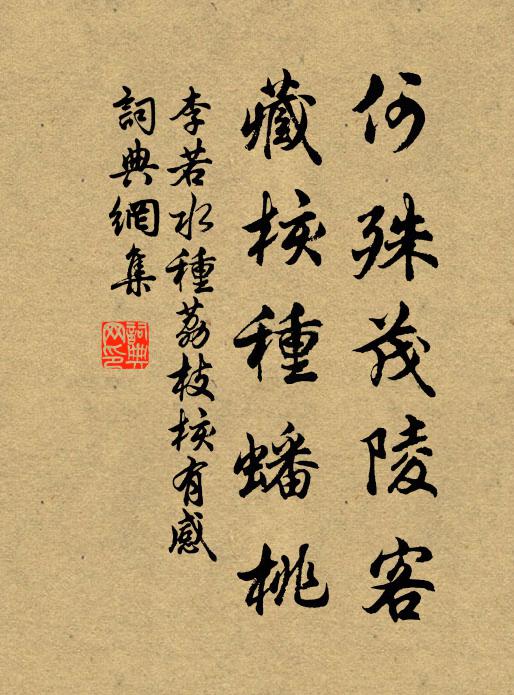 何殊茂陵客
藏核種蟠桃
李若水種荔枝核有感
詞典網集
詞典网印